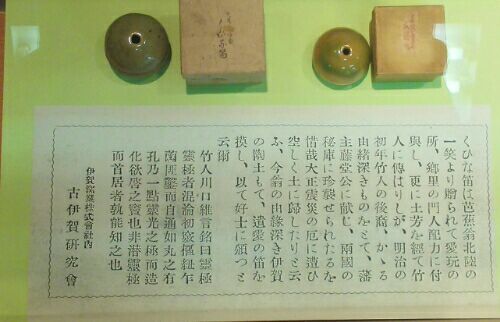 くひな笛は芭蕉翁北陸の
一笑より贈られて愛玩の
所、郷里の門人配力に付
與し、更に土芳を經て竹
人に傳はりしが、明治の
初年竹人の後裔、かゝる
由緒深きものをとて、藩
主藤堂公に献じ、兩國の
秘庫に珍藏せられたるを
惜哉大正震災の厄に遭ひ
空しく土に歸したりと云
ふ、今翁の由緣深き伊賀
の陶土もて、遺愛の笛を
摸し、以て好士に頒つと
云爾
竹人川口維言銘曰靈極
靈極者混淪初竅乍
匣鑿而自通如丸之有
孔乃一點靈光之極而造
化欲啓之竇也非潜靈極
而首居者孰能知之也
伊賀窯業株式會社内
古伊賀研究會